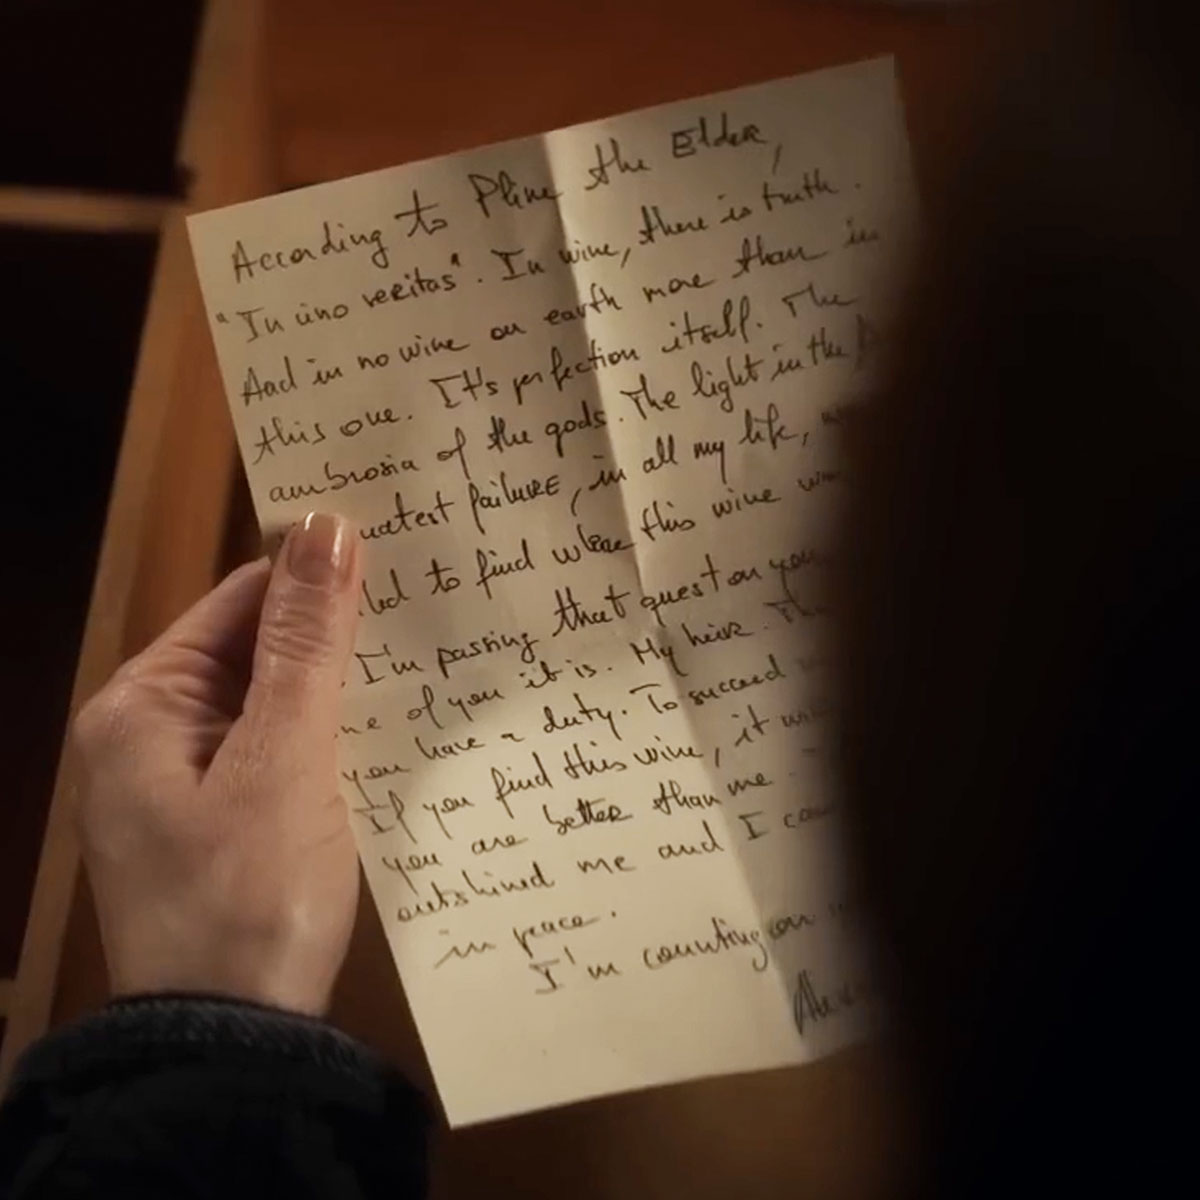 According to Pline the Elder,
"In vino veritas". In wine, there is truth.
And in no wine on earth more than in
this one. It's perfection itself. The
ambrosia of the gods. The light in the
failure, in all my life,
to find where this wine
I'm passing that question
of you it is. My heir.
you have a duty. To succeed
If you find this wine, it
you are better than me.
outshined me and I
in peace.
I'm counting on